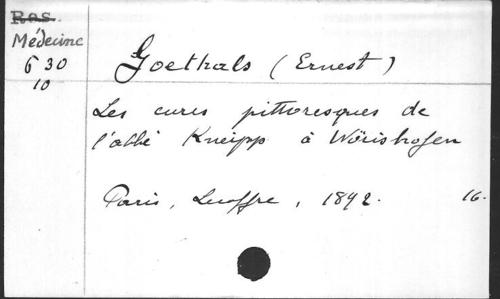 Ras.
Médecine
630
10
Goethals (Ernest)
Les cures pittoresques de
l'abbé Kneipp à Wörishofen
Paris, Lecoffre, 1892. 16.